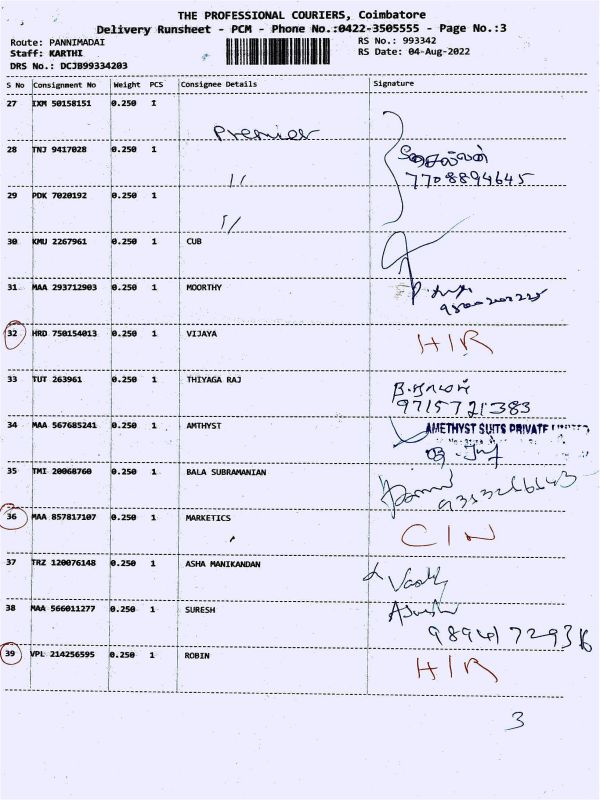 THE PROFESSIONAL COURIERS, Coimbatore
Delivery Runsheet - PCM - Phone No.:0422-3505555 - Page No.:3
Route: PANNIMADAI RS No.: 993342
Staff: KARTHI RS Date: 04-Aug-2022
DRS No.: DCJB99334203
S No Consignment No Weight PCS Consignee Details Signature
27 IXM 50158151 0.250 1 Premier
28 TNJ 9417028 0.250 1 〃
7708894645
29 PDK 7020192 0.250 1 〃
30 KMU 2267961 0.250 1 CUB
31 MAA 293712903 0.250 1 MOORTHY
32 HRD 750154013 0.250 1 VIJAYA HIR
33 TUT 263961 0.250 1 THIYAGA RAJ
9715721383
34 MAA 567685241 0.250 1 AMTHYST AMETHYST SUITS PRIVATE LIMITED
35 TMI 20068760 0.250 1 BALA SUBRAMANIAN
36 MAA 857817107 0.250 1 MARKETICS CIN
37 TRZ 120076148 0.250 1 ASHA MANIKANDAN
38 MAA 566011277 0.250 1 SURESH
39 VPL 214256595 0.250 1 ROBIN HIR
3